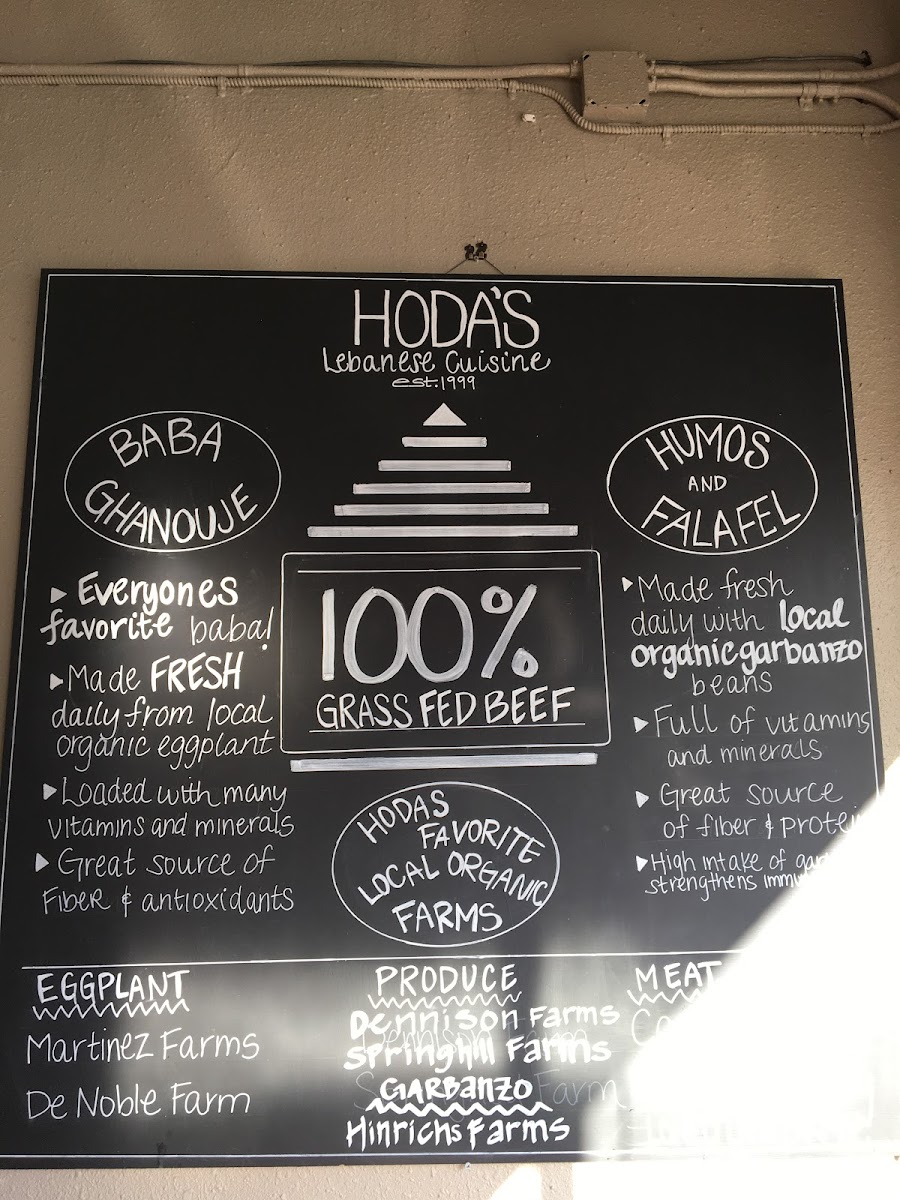 HODA'S
Lebanese Cuisine
est. 1999
BABA
GHANOUJE
▸ Everyones
favorite baba!
▸ Made FRESH
daily from local
organic eggplant
▸ Loaded with many
vitamins and minerals
▸ Great source of
Fiber & antioxidants
100%
GRASS FED BEEF
HUMOS
AND
FALAFEL
▸ Made fresh
daily with local
organic garbanzo
beans
▸ Full of vitamins
and minerals
▸ Great source
of fiber &
▸ High intake of
strengthens
HODAS
FAVORITE
LOCAL ORGANIC
FARMS
EGGPLANT
Martinez Farms
De Noble Farm
PRODUCE
Dennison Farms
Springhill Farms
GARBANZO
Hinrichs Farms
MEAT